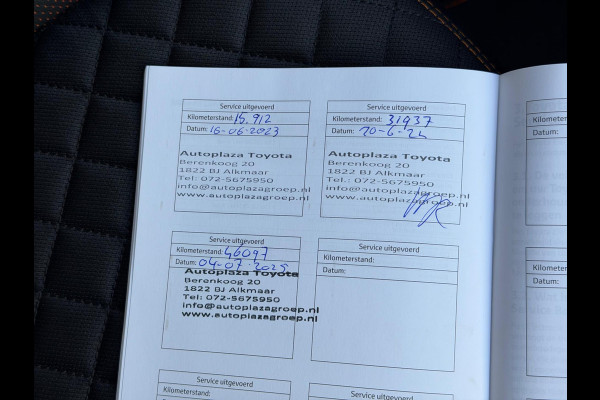 Service uitgevoerd
Kilometerstand: 15.912
Datum: 16-06-2023
Autoplaza Toyota
Berenkoog 20
1822 BJ Alkmaar
Tel.: 072-5675950
info@autoplazagroep.nl
www.autoplazagroep.nl
Service uitgevoerd
Kilometerstand: 31937
Datum: 10-6-24
Autoplaza Toyota
Berenkoog 20
1822 BJ Alkmaar
Tel.: 072-5675950
info@autoplazagroep.nl
www.autoplazagroep.nl
Kilometerst
Datum:
Service uitgevoerd
Kilometerstand: 46097
Datum: 04-07-2025
Autoplaza Toyota
Berenkoog 20
1822 BJ Alkmaar
Tel: 072-5675950
info@autoplazagroep.nl
www.autoplazagroep.nl
Service uitgevoerd
Kilometerstand:
Datum:
Kilometerst
Datum:
Service uitgevoerd
Kilometerstand:
Service uitgevoerd
Kilometerstand: